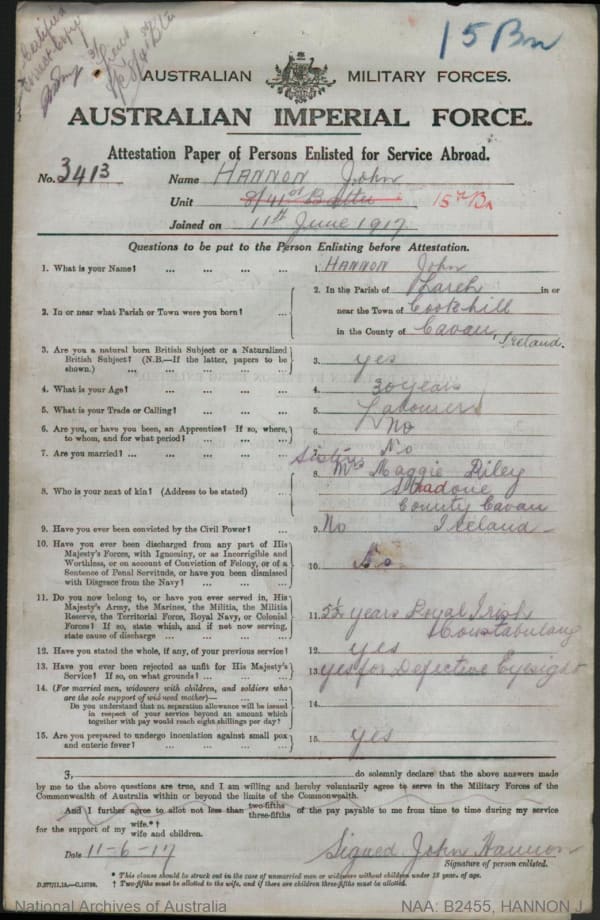 Certified
correct copy
15 Bn
AUSTRALIAN MILITARY FORCES.
AUSTRALIAN IMPERIAL FORCE.
Attestation Paper of Persons Enlisted for Service Abroad.
No. 3413 Name HANNON John
Unit 8/41st Battn 15th Bn
Joined on 11th June 1917
Questions to be put to the Person Enlisting before Attestation.
1. What is your Name? ... ... ... ... 1. HANNON John
2. In or near what Parish or Town were you born? ... 2. In the Parish of in or
near the Town of Cootehill
in the County of Cavan, Ireland.
3. Are you a natural born British Subject or a Naturalized
British Subject? (N.B.—If the latter, papers to be
shown.) ... ... ... ... 3. yes
4. What is your Age? ... ... ... ... 4. 30 years
5. What is your Trade or Calling? ... ... ... 5. Labourer
6. Are you, or have you been, an Apprentice? If so, where,
to whom, and for what period? ... ... ... 6. No
7. Are you married? ... ... ... ... 7. No
8. Who is your next of kin? (Address to be stated) ... 8. Sister Mrs Maggie Riley
Stradone
County Cavan
Ireland
9. Have you ever been convicted by the Civil Power? ... 9. No
10. Have you ever been discharged from any part of His
Majesty's Forces, with Ignominy, or as Incorrigible and
Worthless, or on account of Conviction of Felony, or of a
Sentence of Penal Servitude, or have you been dismissed
with Disgrace from the Navy? ... ... ... 10. No
11. Do you now belong to, or have you ever served in, His
Majesty's Army, the Marines, the Militia, the Militia
Reserve, the Territorial Force, Royal Navy, or Colonial
Forces? If so, state which, and if not now serving,
state cause of discharge ... ... ... 11. 5½ years Royal Irish
Constabulary
12. Have you stated the whole, if any, of your previous service? 12. yes
13. Have you ever been rejected as unfit for His Majesty's
Service? If so, on what grounds? ... ... 13. yes for Defective Eyesight
14. (For married men, widowers with children, and soldiers who
are the sole support of widowed mother)—
Do you understand that no separation allowance will be issued
in respect of your service beyond an amount which
together with pay would reach eight shillings per day? 14.
15. Are you prepared to undergo inoculation against small pox
and enteric fever? ... ... ... ... 15. yes
I, do solemnly declare that the above answers made
by me to the above questions are true, and I am willing and hereby voluntarily agree to serve in the Military Forces of the
Commonwealth of Australia within or beyond the limits of the Commonwealth.
And I further agree to allot not less than two-fifths three-fifths of the pay payable to me from time to time during my service
for the support of my wife.*† wife and children.
Date 11-6-17 Signed John Hannon
Signature of person enlisted.
* This clause should be struck out in the case of unmarried men or widowers without children under 18 years of age.
† Two-fifths must be allotted to the wife, and if there are children three-fifths must be allotted.
National Archives of Australia NAA: B2455, HANNON J